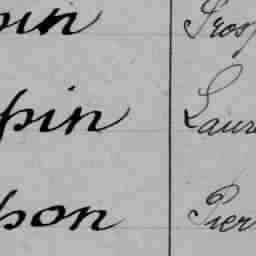 pin Pros
pin Laur
pon Pier